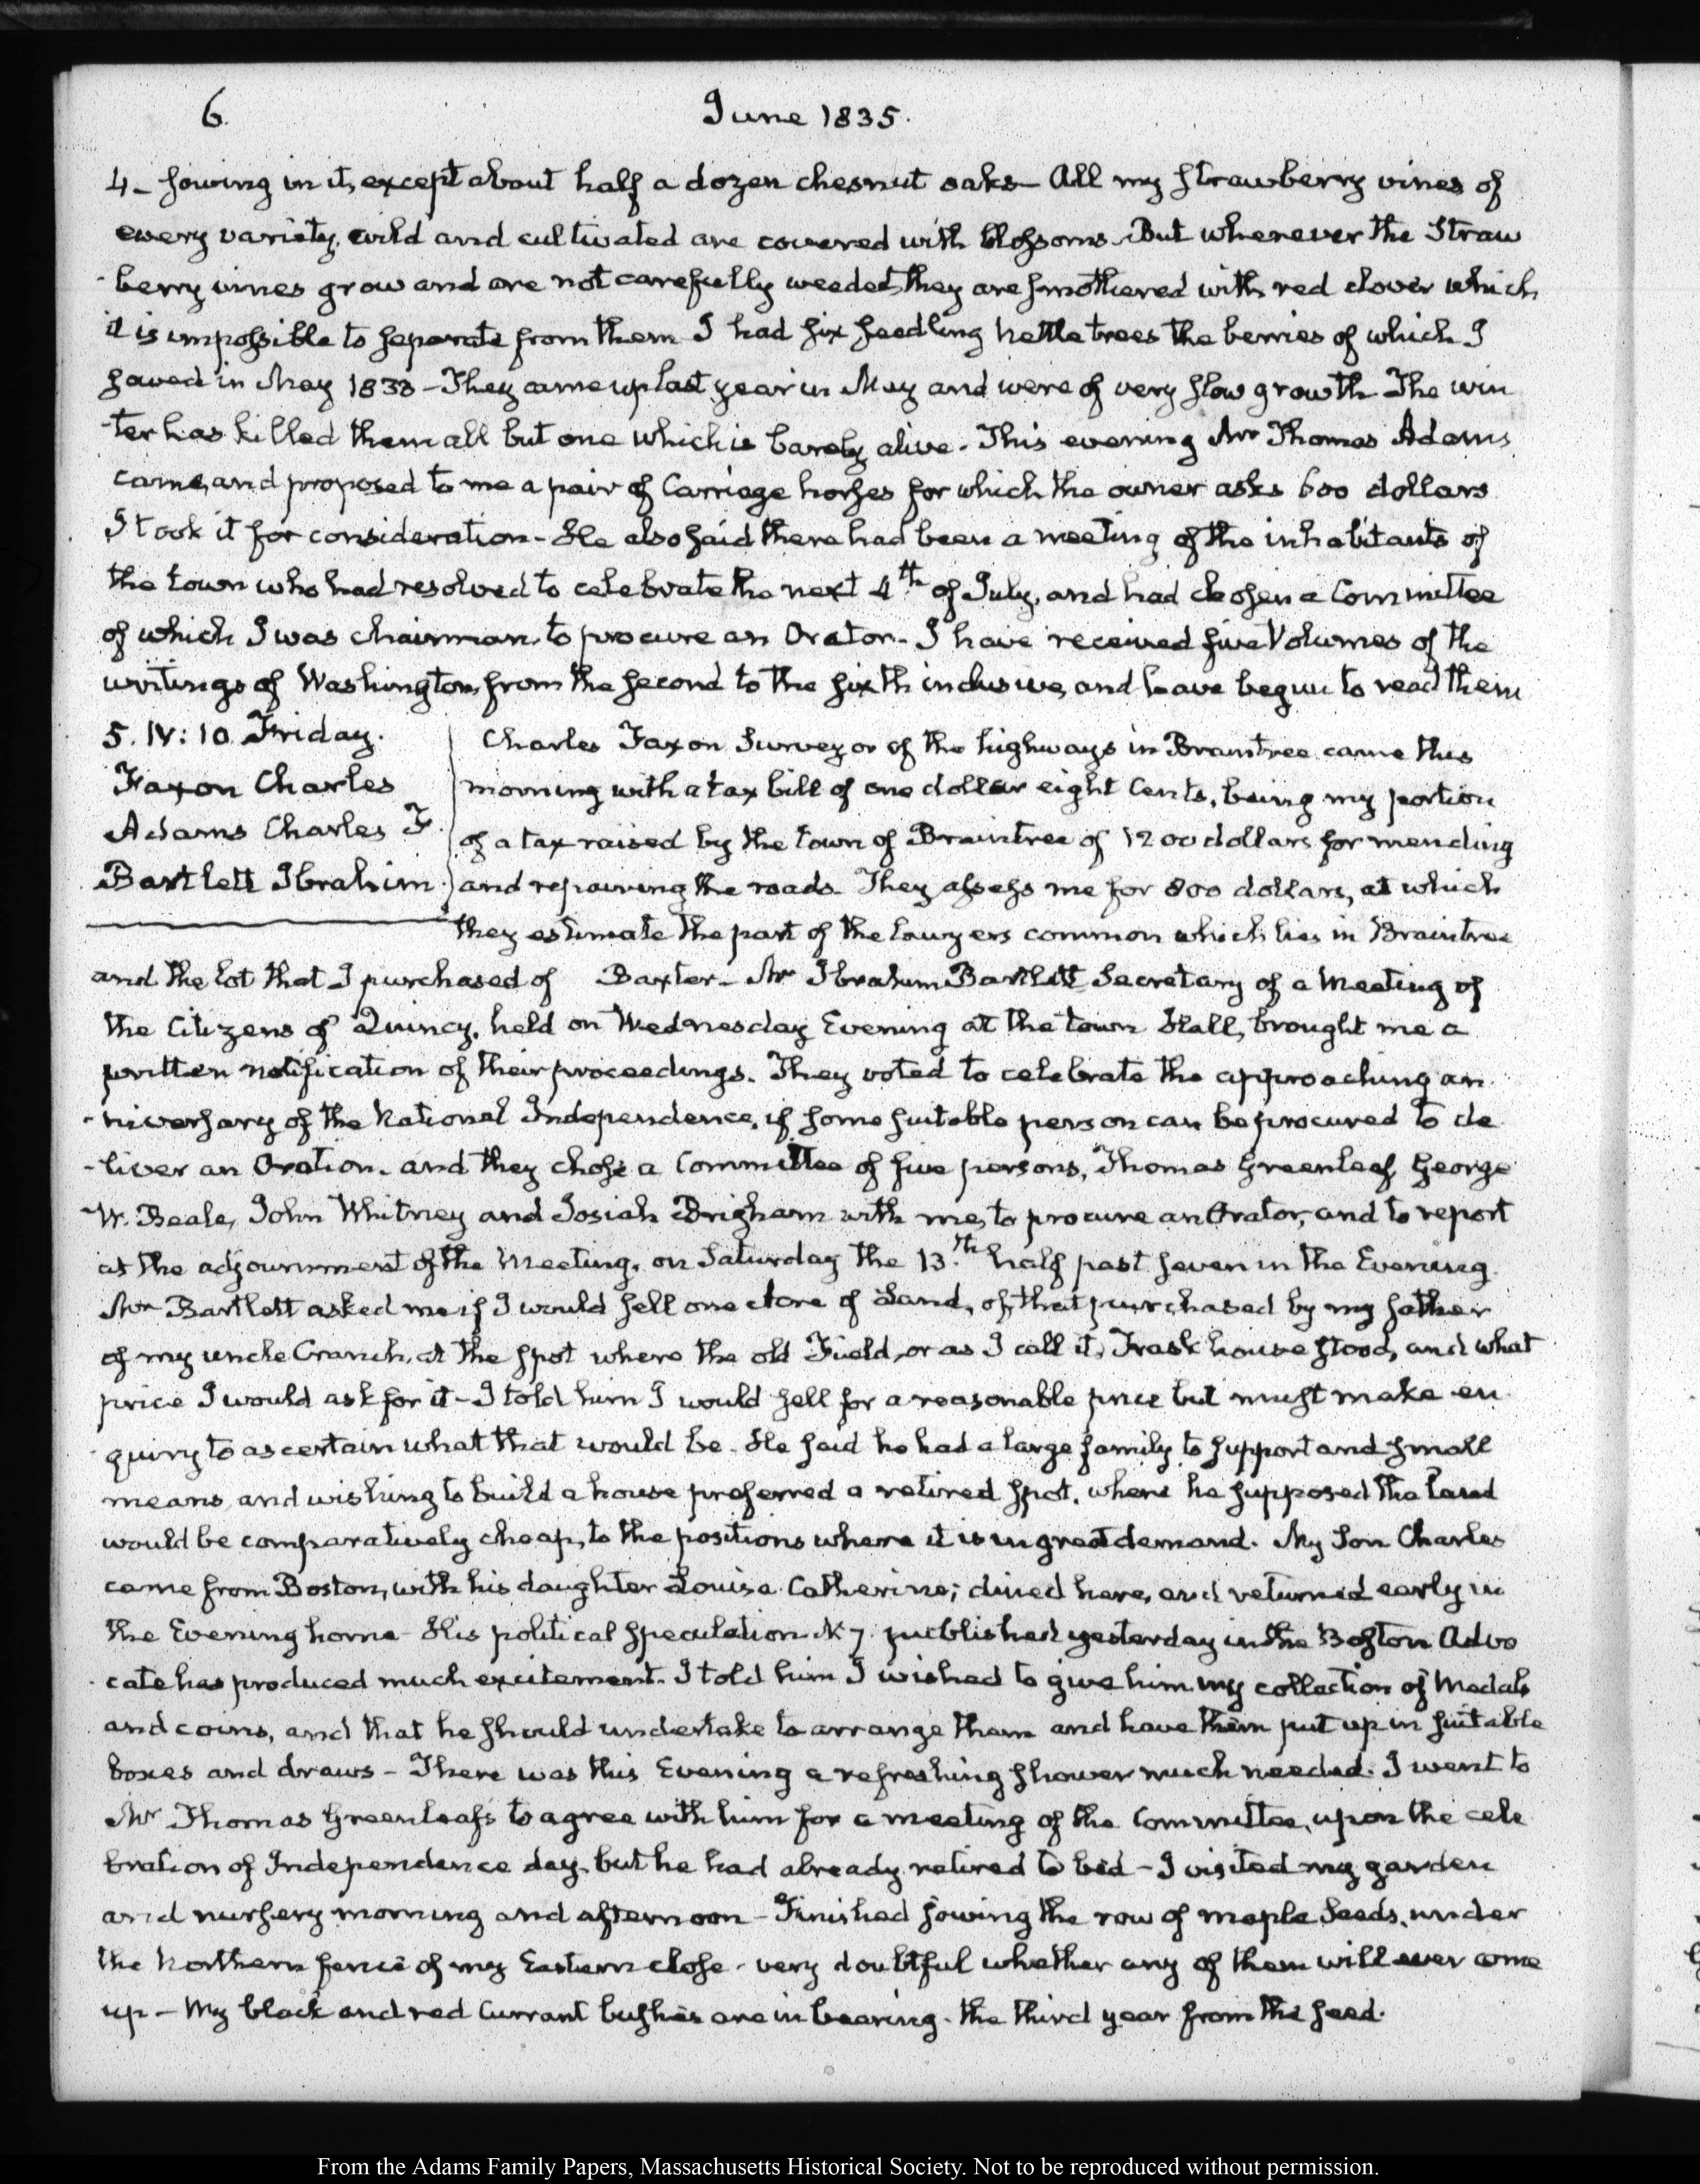 6.
June 1835.
4 – sowing in it, except about half a dozen chesnut oaks – All my strawberry vines of
every variety, wild and cultivated are covered with blossoms. But wherever the Straw
-berry vines grow and are not carefully weeded, they are smothered with red clover which
it is impossible to separate from them. I had six seedling nettle trees the berries of which I
sowed in May 1833 – They came up last year in May and were of very slow growth. The win
-ter has killed them all but one which is barely alive. This evening Mr Thomas Adams
came, and proposed to me a pair of Carriage horses for which the owner asks 600 dollars
I took it for consideration – He also said there had been a meeting of the inhabitants of
the town who had resolved to celebrate the next 4th of July, and had chosen a Committee
of which I was chairman, to procure an Orator – I have received five Volumes of the
writings of Washington, from the second to the sixth inclusive, and have begun to read them
5. IV: 10. Friday.
Faxon Charles
Adams Charles F.
Bartlett Ibrahim.
Charles Faxon Surveyor of the highways in Braintree came this
morning with a tax bill of one dollar eight Cents, being my portion
of a tax raised by the town of Braintree of 1200 dollars for mending
and repairing the roads. They assess me for 800 dollars, at which
they estimate the part of the lawyers common which lies in Braintree
and the lot that I purchased of Baxter – Mr Ibrahim Bartlett Secretary of a Meeting of
the Citizens of Quincy, held on Wednesday Evening at the town Hall, brought me a
written notification of their proceedings. They voted to celebrate the approaching an
-niversary of the National Independence, if some suitable person can be procured to de
-liver an Oration. and they chose a Committee of five persons, Thomas Greenleaf, George
W. Beale, John Whitney and Josiah Brigham with me, to procure an Orator, and to report
at the adjournment of the Meeting, on Saturday the 13.th half past seven in the Evening.
Mr Bartlett asked me if I would sell one Acre of Land, of that purchased by my father
of my uncle Cranch, at the spot where the old Field, or as I call it, Trask house stood, and what
price I would ask for it – I told him I would sell for a reasonable price but must make en
-quiry to ascertain what that would be. He said he had a large family to support and small
means, and wishing to build a house preferred a retired spot, where he supposed the land
would be comparatively cheap, to the positions where it is in great demand. My Son Charles
came from Boston, with his daughter Louisa Catherine; dined here, and returned early in
the Evening home – His political speculation N 7. published yesterday in the Boston Advo
-cate has produced much excitement. I told him I wished to give him my collection of Medals
and coins, and that he should undertake to arrange them and have them put up in suitable
boxes and draws – There was this Evening a refreshing shower much needed. I went to
Mr Thomas Greenleaf's to agree with him for a meeting of the Committee, upon the cele
bration of Independence day, but he had already retired to bed – I visited my garden
and nursery morning and afternoon – Finished sowing the row of maple seeds, under
the Northern fence of my Eastern close – very doubtful whether any of them will ever come
up – My black and red Currant bushes are in bearing. the third year from the seed.
From the Adams Family Papers, Massachusetts Historical Society. Not to be reproduced without permission.